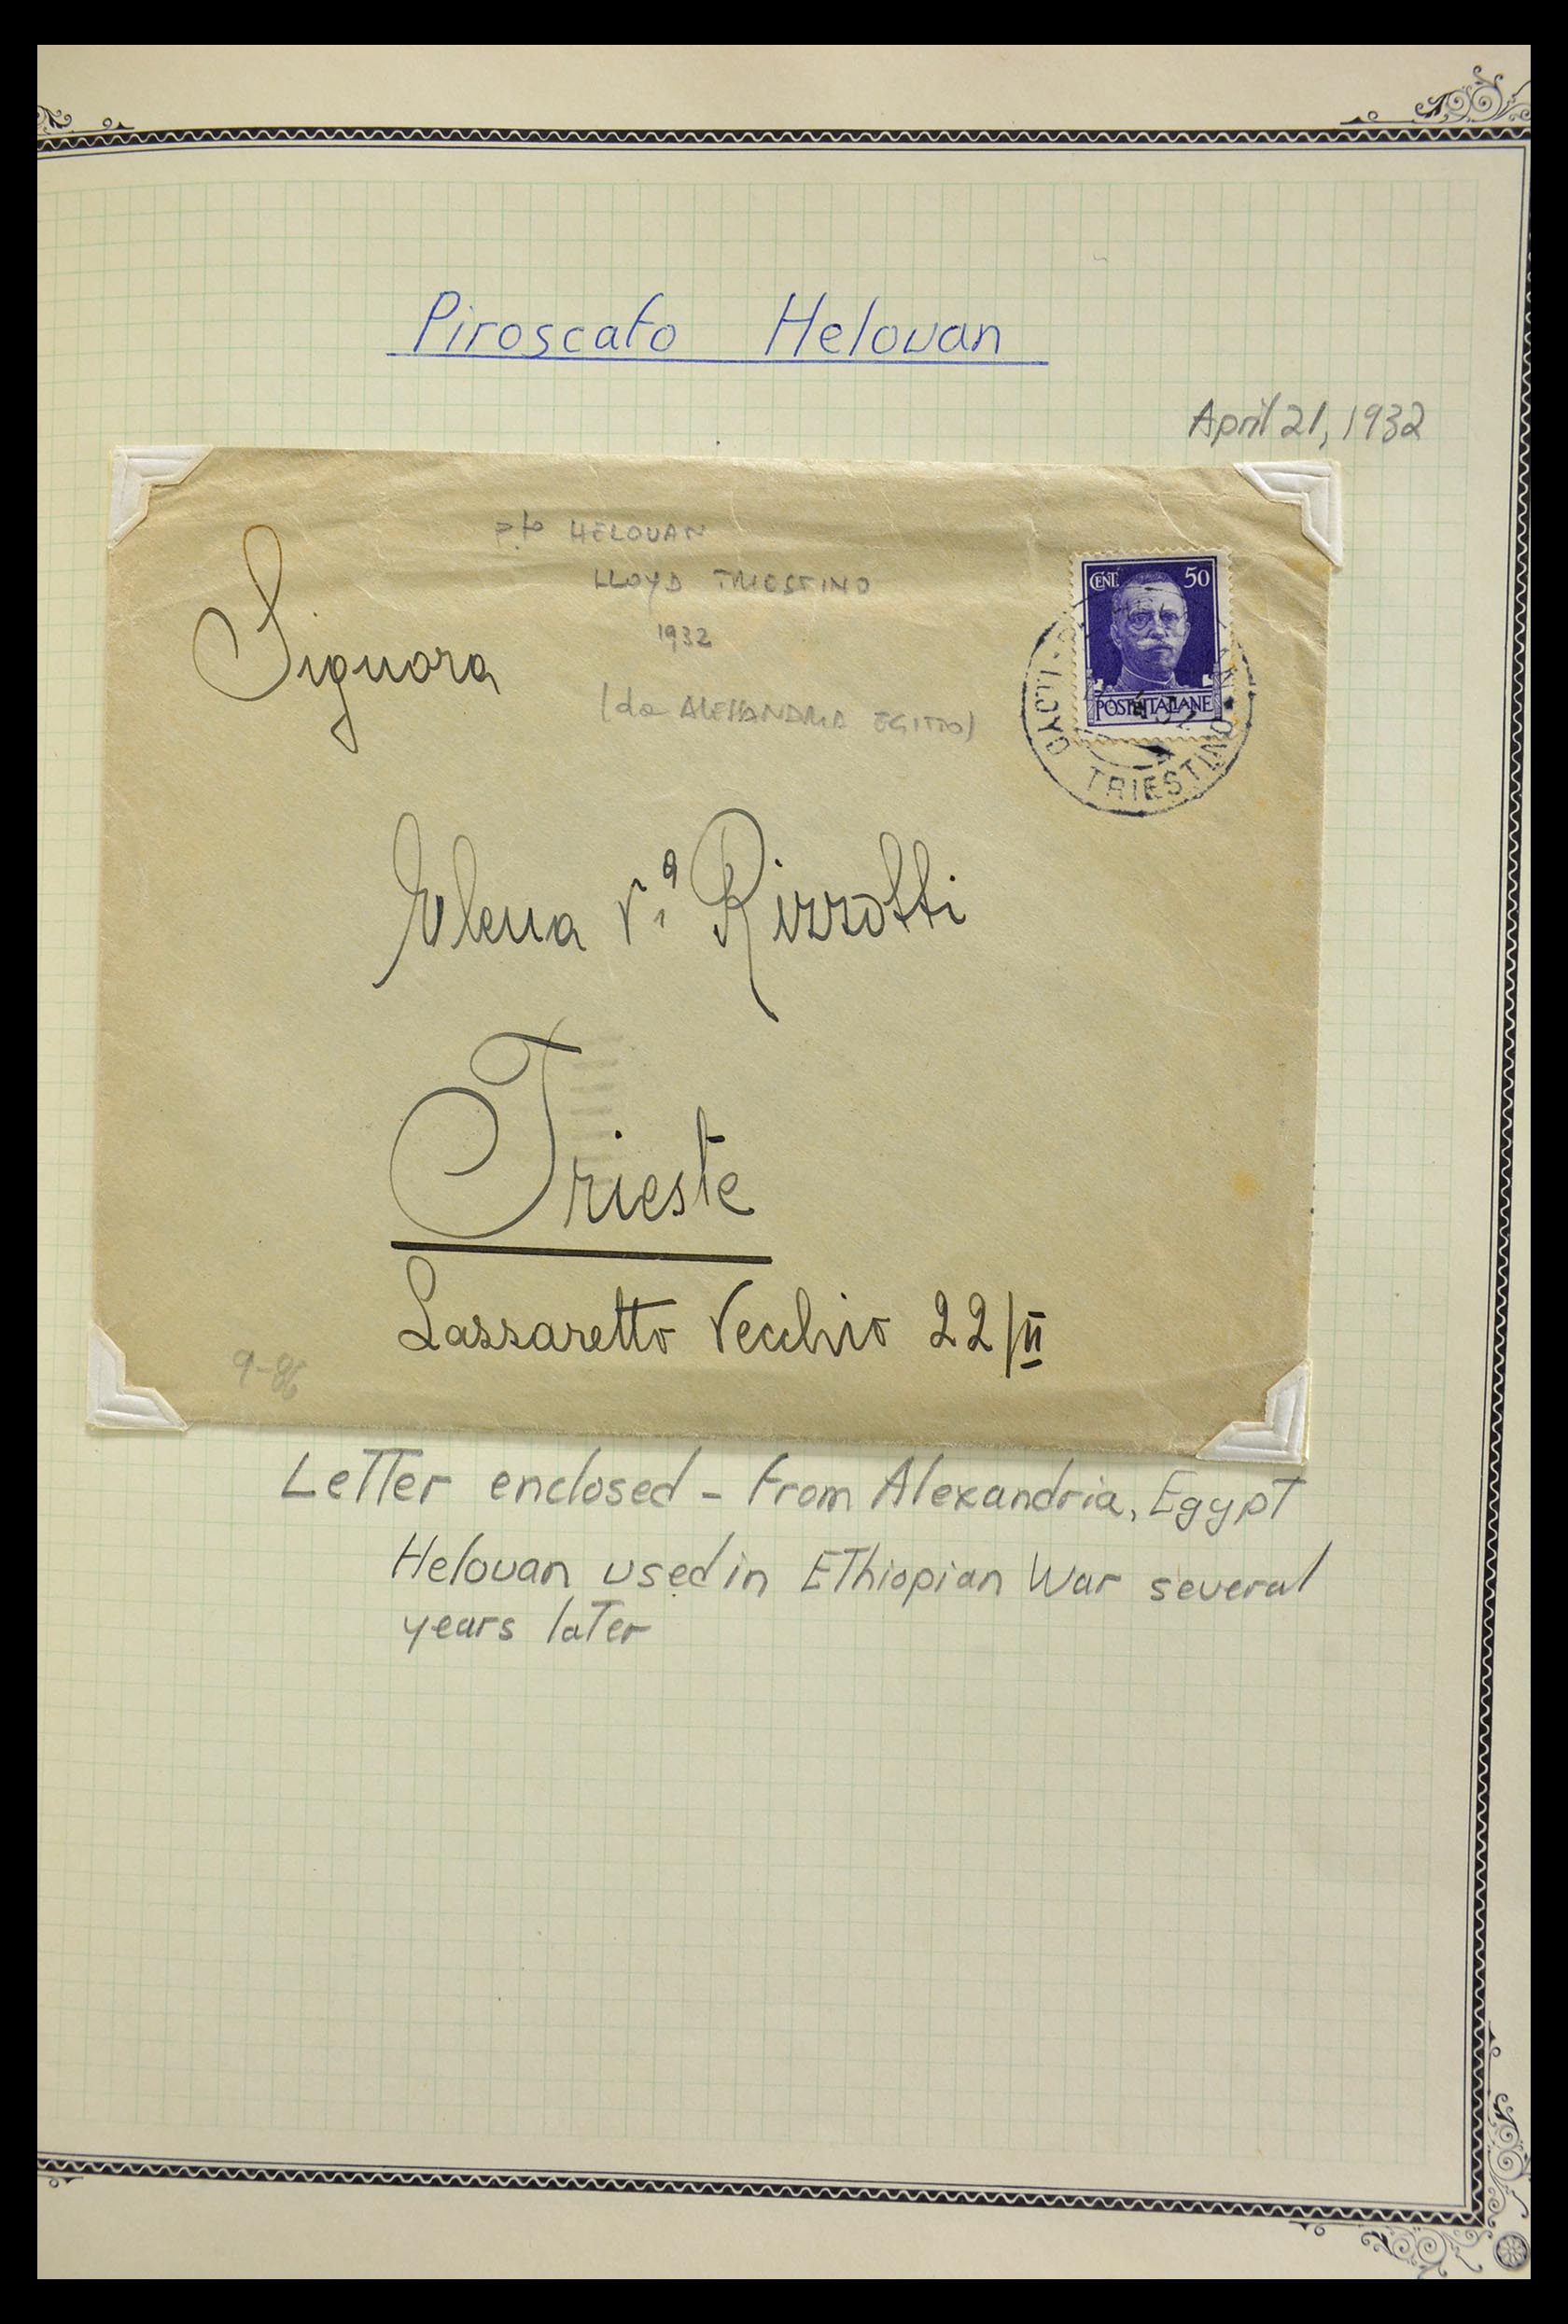 Piroscafo Helouan
April 21, 1932
p.fo HELOUAN
LLOYD TRIESTINO
1932
(da ALESSANDRIA EGITTO)
CENT. 50
POSTE ITALIANE
LLOYD TRIESTINO
Signora
Elena v.a Rizzotti
Trieste
Lazzaretto Vecchio 22/II
9-86
Letter enclosed - From Alexandria, Egypt
Helouan used in Ethiopian War several
years later